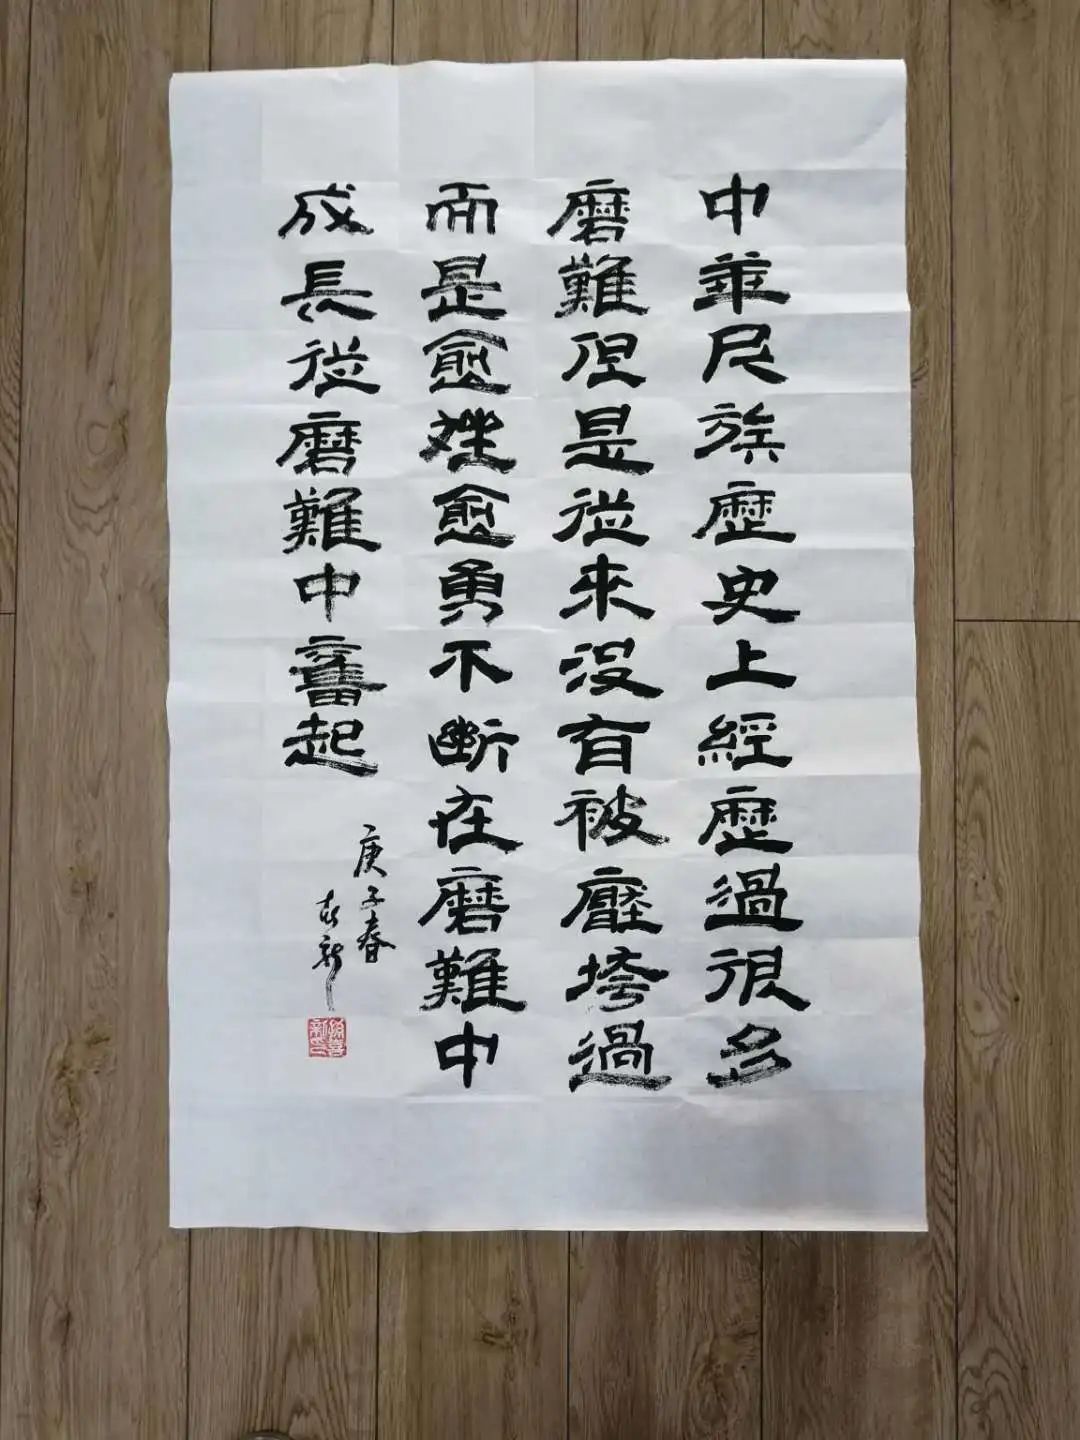 中華民族歷史上經歷過很多
磨難但是從來沒有被壓垮過
而是愈挫愈勇不斷在磨難中
成長從磨難中奮起
庚子春